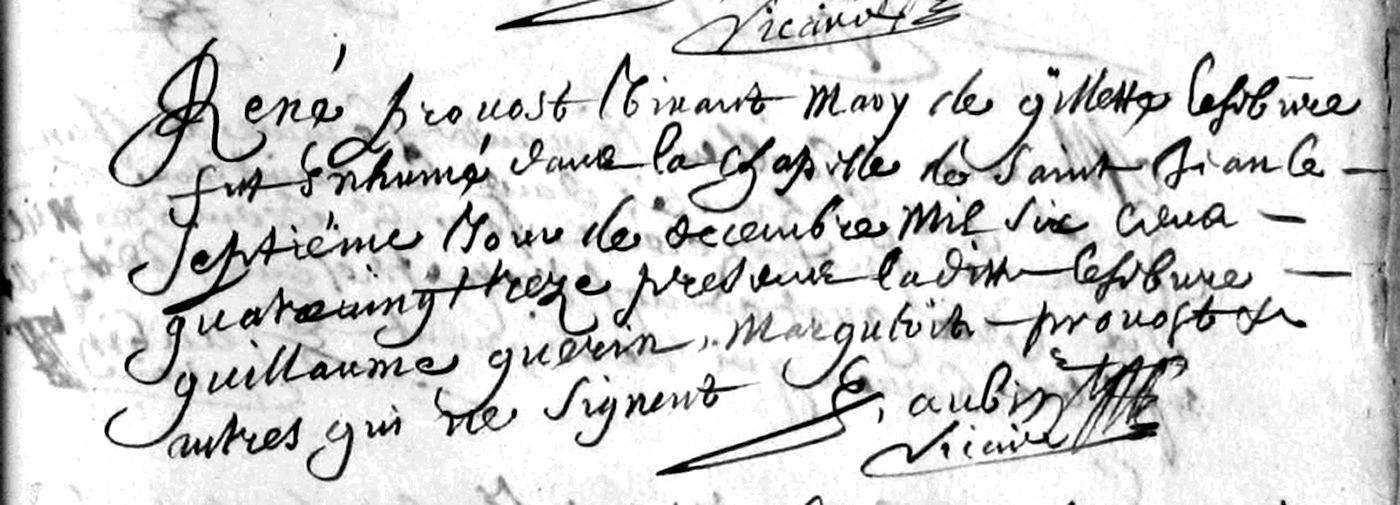 vicaire
René provost vivant mary de gillette lefebure
fut Enhumé dans la chapelle de saint Jean le
septième Jour de decembre mil six cens
quatre vingt treze presens laditte lefebure
guillaume guerin, provost et
autres qui ne signent E, aubin
vicaire